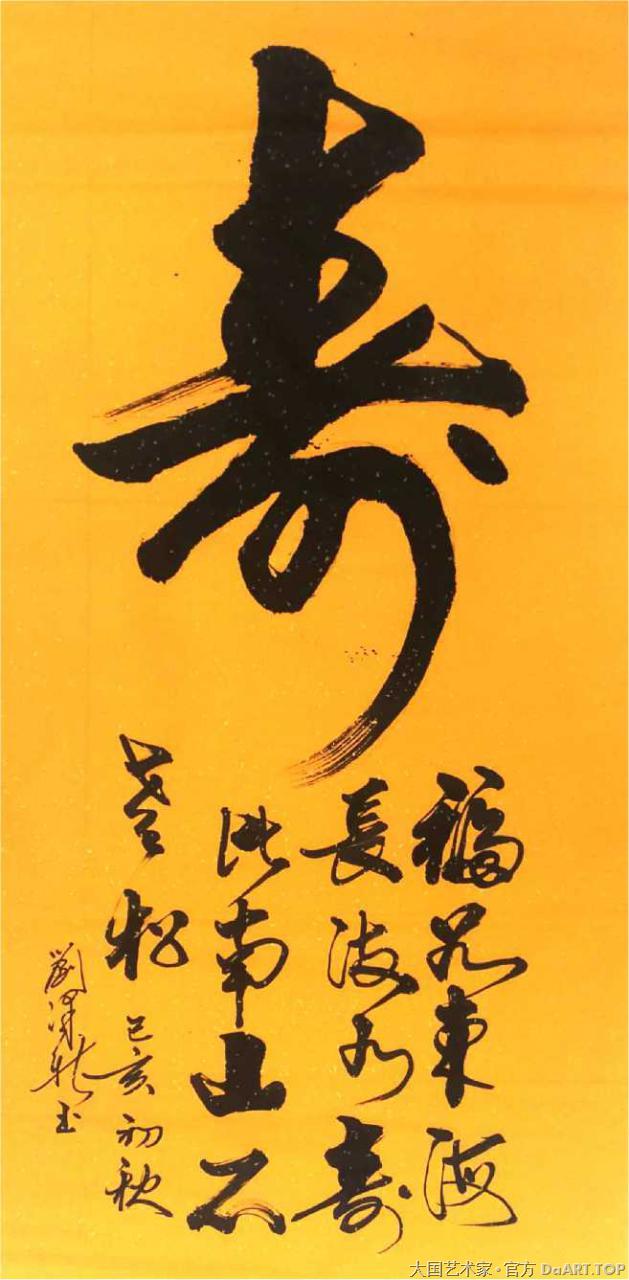 寿
福如東海
長流水寿
比南山不
老松
己亥初秋
劉泽书
大国艺术家·官方 DaART.TOP